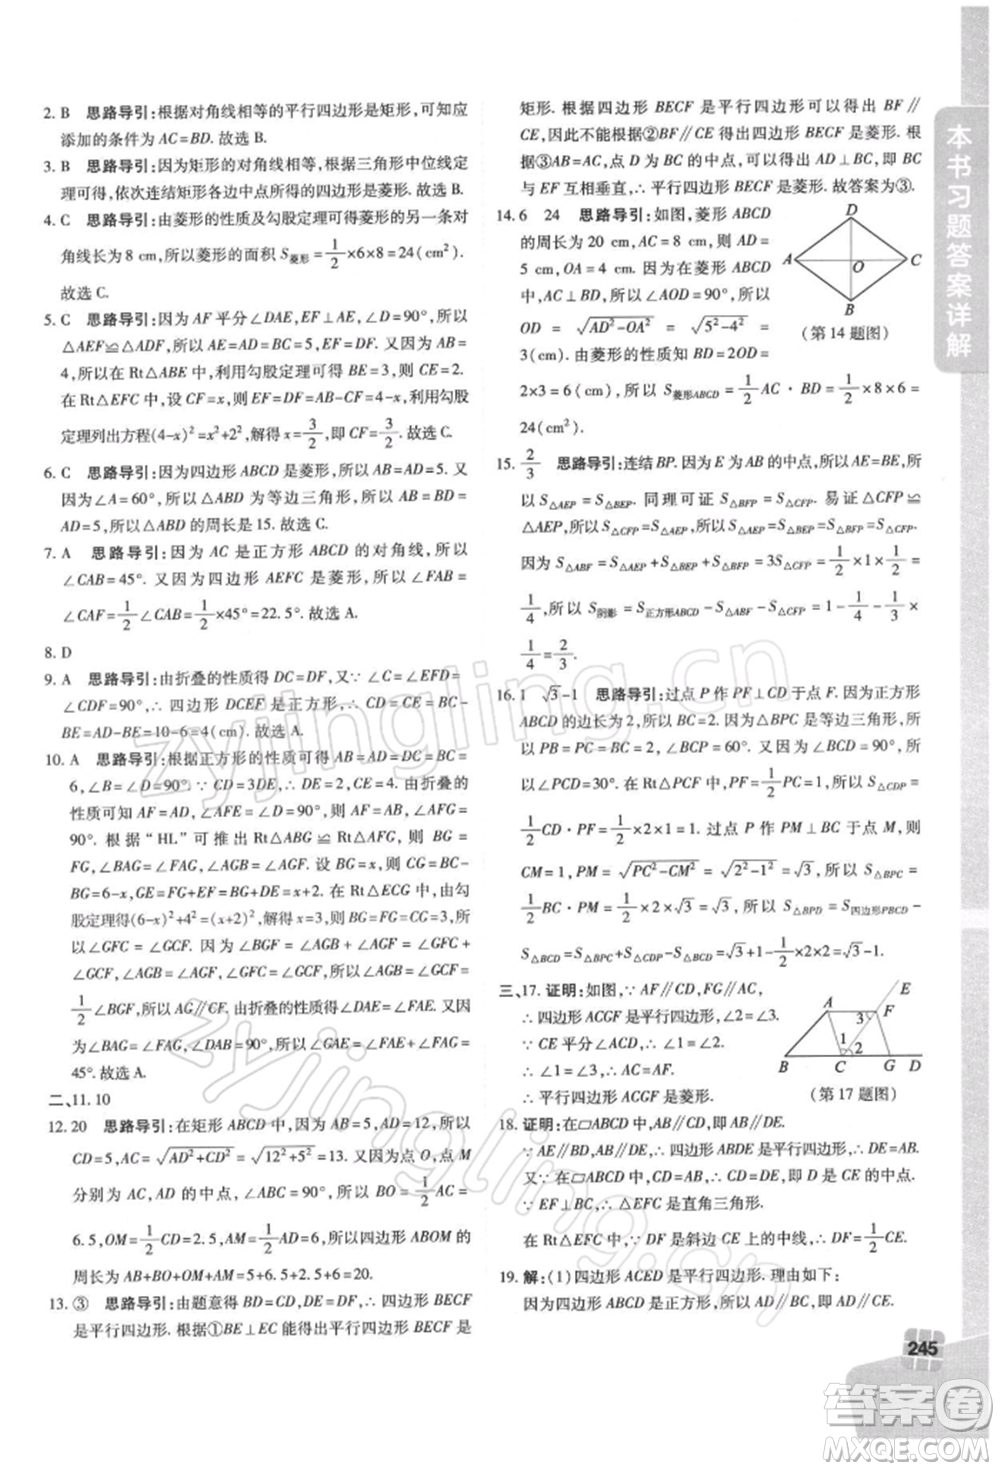 2. B 思路导引:根据对角线相等的平行四边形是矩形,可知应
添加的条件为 AC=BD. 故选 B.
3. B 思路导引:因为矩形的对角线相等,根据三角形中位线定
理可得,依次连结矩形各边中点所得的四边形是菱形. 故选 B.
4. C 思路导引:由菱形的性质及勾股定理可得菱形的另一条对
角线长为 8 cm,所以菱形的面积 S菱形=1/2×6×8=24(cm²).
故选 C.
5. C 思路导引:因为 AF 平分∠DAE,EF⊥AE,∠D=90°,所以
△AEF≌△ADF,所以 AE=AD=BC=5,EF=DF. 因为 AB=
4,所以在 Rt△ABE 中,利用勾股定理可得 BE=3,所以 CE=2.
在 Rt△EFC 中,设 CF=x,则 EF=DF=AB-CF=4-x,利用勾股
定理列出方程(4-x)²=x²+2²,解得 x=3/2,即 CF=3/2. 故选 C.
6. C 思路导引:因为四边形 ABCD 是菱形,所以 AB=AD=5. 又
因为∠A=60°,所以△ABD 为等边三角形,所以 BD=AB=
AD=5,所以△ABD 的周长是 15. 故选 C.
7. A 思路导引:因为 AC 是正方形 ABCD 的对角线,所以
∠CAB=45°. 又因为四边形 AEFC 是菱形,所以
∠CAF=1/2∠CAB=1/2×45°=22.5°. 故选 A.
8. D
9. A 思路导引:由折叠的性质可得 DC=DF,又∠C=∠EFD=
∠CDF=90°,∴ 四边形 DCEF 是正方形,∴ CE=CD,∴
BE=AD-AB=10-6=4(cm). 故选 A.
10. A 思路导引:根据正方形的性质可得 AB=AD=DC=BC=
6,∠B=∠D=90°. ∵ CD=3DE,∴ DE=2. 由折叠的
性质可知 AF=AD,∠AFE=∠D=90°,∴ AF=AB,∠AFG=
90°. 根据“HL”可推出 Rt△ABG≌Rt△AFG,则 BG=
FG,∠BAG=∠FAG,∠AGB=∠AGF. 设 BG=x,则 CG=BC-
BG=6-x,GE=GF+EF=BG+DE=x+2. 在 Rt△ECG 中,由勾
股定理得(6-x)²+4²=(x+2)²,解得 x=3,∴ BG=GF=CG=3,
∴ ∠GFC=∠GCF. 因为∠BGF=∠GFC+∠GCF=∠GFC+
∠GCF,∠AGB+∠AGF=∠GFC+∠GCF,∴ ∠AGB=∠GCF=
1/2∠BGF,所以 AG∥CF. 由折叠的性质得∠DAE=∠FAE. 又
因为∠BAG=∠FAG,∠DAB=90°,∴ ∠GAE=1/2×90°=
45°. 故选 A.
二、11. 10
12. 20 思路导引:在矩形 ABCD 中,因为 AB=5,AD=12,所以
CD=5,AC=√AD²+CD²=√12²+5²=13. 又因为点 O,点 M
分别为 AC,AD 的中点,∠ABC=90°,所以 BO=1/2AC=
6.5,OM=1/2CD=2.5,AM=1/2AD=6,所以四边形 ABOM 的
周长为 AB+BO+OM+AM=5+6.5+2.5+6=20.
13. ③ 思路导引:由题意得 BD=CD,DE=DF,∴ 四边形 BECF
是平行四边形. 根据①BE⊥EC 能得出平行四边形 BECF 是
矩形. 根据四边形 BECF 是平行四边形可以得出 BF∥
CE,因此不能根据②BF∥CE 得出四边形 BECF 是菱形. 根
据③AB=AC,点 D 为 BC 的中点,可以得出 AD⊥BC,故 BC
与 EF 互相垂直,∴ 平行四边形 BECF 是菱形. 故答案为③.
14. 6 24 思路导引:如图,菱形 ABCD
的周长为 20 cm,AC=8 cm,则 AD=
5 cm,OA=4 cm. 因为在菱形 ABCD
中,AC⊥BD,所以∠AOD=90°,所以
OD=√AD²-OA²=√5²-4²=
3(cm). 由菱形的性质知 BD=2OD=
2×3=6(cm),所以 S菱形ABCD=1/2AC·BD=1/2×8×6=
24(cm²).
D
A
O
C
B
(第 14 题图)
15. 2/3 思路导引:连结 BP. 因为 E 为 AB 的中点,所以 AE=BE,所
以 S△AEP=S△BEP. 同理可证 S△BFP=S△CFP. 易证△CFP≌
△AEP,所以 S△CFP=S△AEP,所以 S△AEP=S△BEP=S△BFP=S△CFP.
因为 S△ABF=S△AEP+S△BEP+S△BFP=3S△CFP=1/2×1×1/2=
1/4,所以 S阴影=S正方形ABCD-S△ABF-S△CFP=1-1/4-1/3×
1/4=2/3.
16. 1 √3-1 思路导引:过点 P 作 PF⊥CD 于点 F. 因为正方形
ABCD 的边长为 2,△BPC 为等边三角形,所
以 PB=PC=BC=2,∠PCB=60°. 又因为∠BCD=90°,所
以∠PCD=30°. 在 Rt△PCF 中,PF=1/2PC=1,所以 S△PCD=
1/2CD·PF=1/2×2×1=1. 过点 P 作 PM⊥BC 于点 M,所以
CM=1,PM=√PC²-CM²=√2²-1²=√3,所以 S△BPC=
1/2BC·PM=1/2×2×√3=√3,所以 S△BPD=S四边形PBCD-
S△BCD=S△BPC+S△CDP-S△BCD=√3+1-1/2×2×2=√3-1.
三、17. 证明:如图,∵ AF∥CD,FG∥AC,
∴ 四边形 ACGF 是平行四边形,∠2=∠3.
∵ CE 平分∠ACD,∴ ∠1=∠2,
∴ ∠1=∠3,∴ AC=AF,
∴ 平行四边形 ACGF 是菱形.
E
A
3
F
1
2
B
C
G
D
(第 17 题图)
18. 证明:在▱ABCD 中,AB∥CD,即 AB∥DE.
∵ AE∥BD,AB∥DE,∴ 四边形 ABDE 是平行四边形,
∴ AB=DE. 又∵ 在▱ABCD 中,AB=CD,∴ DE=CD.
∵ EF⊥BC,∴ △EFC 是直角三角形.
在 Rt△EFC 中,∵ DF 是斜边 CE 上的中线,∴ DF=1/2CE.
19. 解:(1)四边形 ACED 是平行四边形. 理由如下:
因为四边形 ABCD 是正方形,所以 AD∥BC,即 AD∥CE.
本书习题答案详解
245
zyjingling.cn
zyjingling.cn
答案圈
MXQE.COM